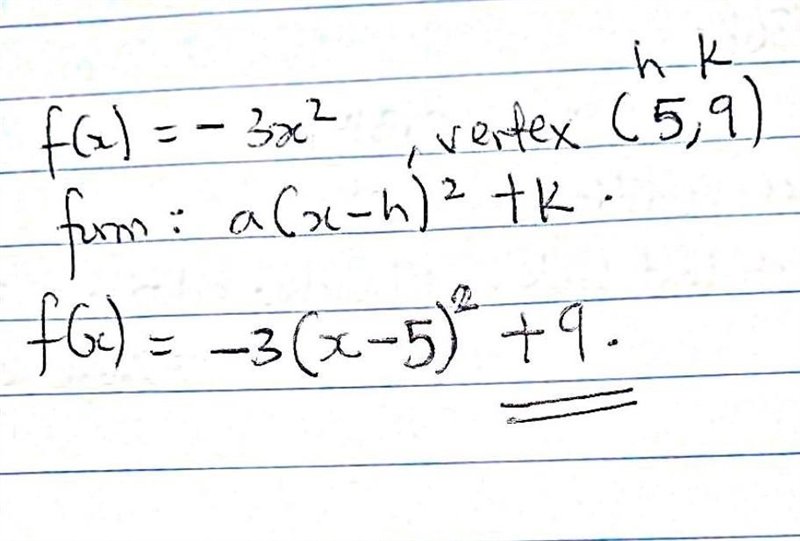 h k
f(x) = - 3x², vertex (5,9)
form: a(x-h)² +k.
f(x) = -3(x-5)² +9.